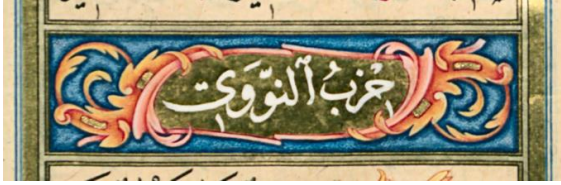 حِزْبُ ٱلنَّوَوِيّ